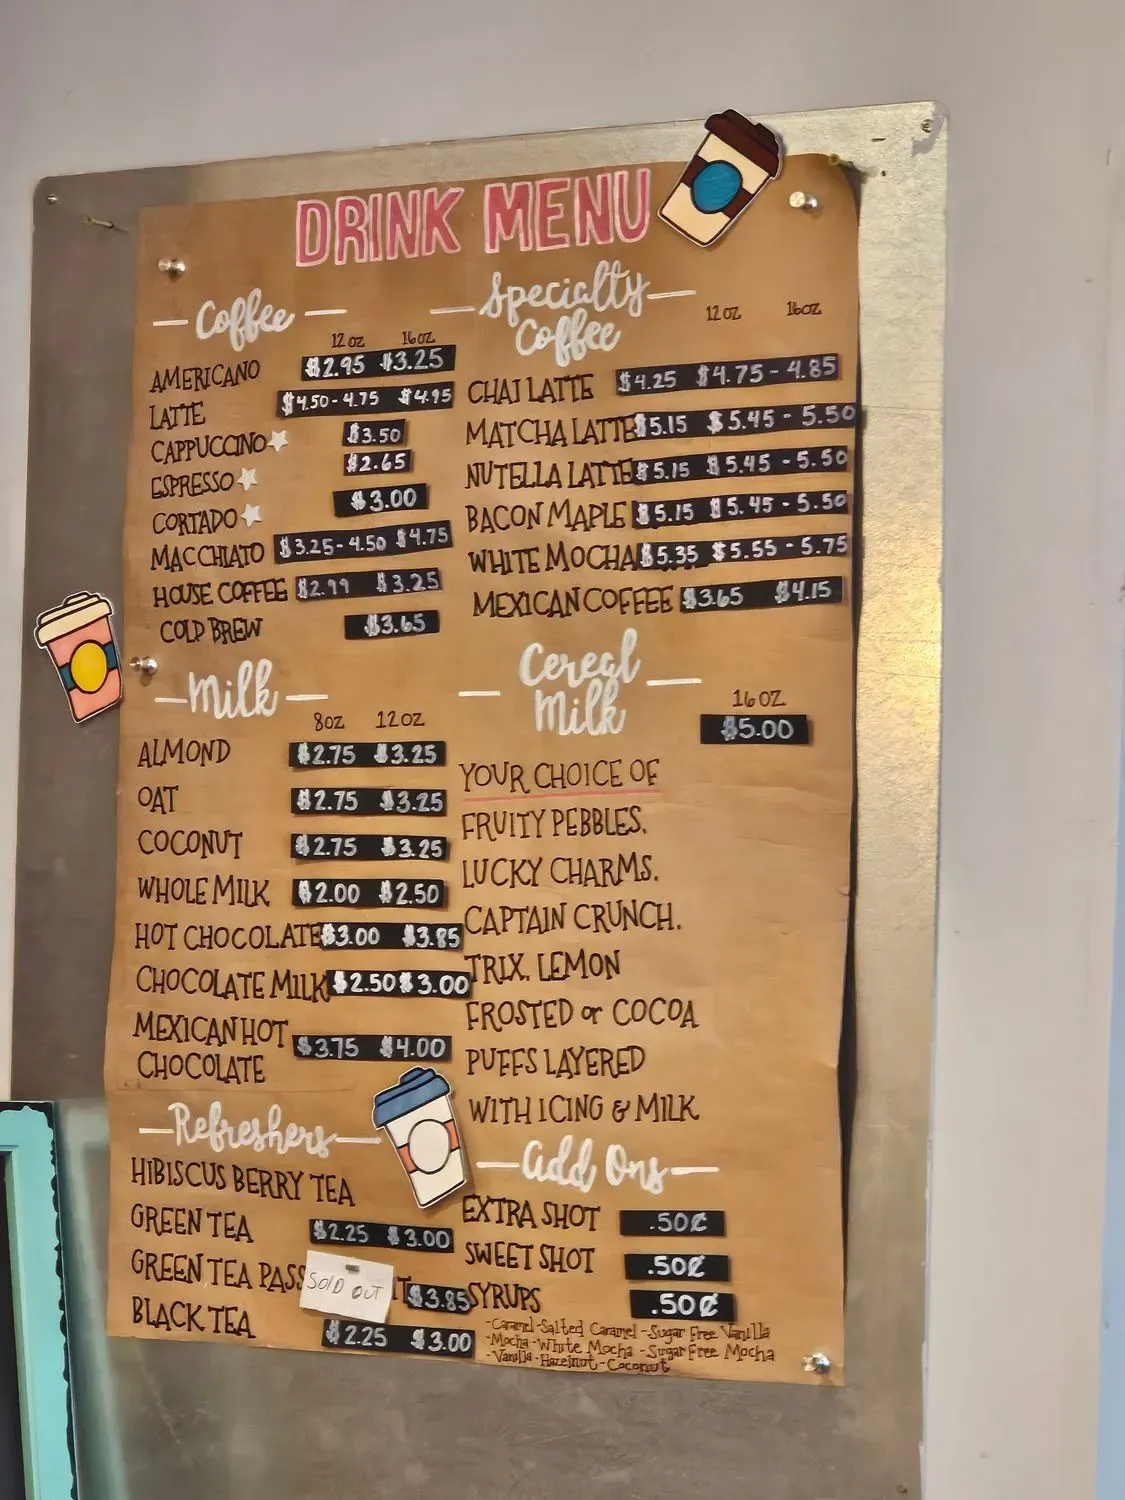 DRINK MENU
Coffee
12 oz 16 oz
AMERICANO $2.95 $3.25
LATTE $4.50-4.75 $4.95
CAPPUCCINO $3.50
ESPRESSO $2.65
CORTADO $3.00
MACCHIATO $3.25-4.50 $4.75
HOUSE COFFEE $2.99 $3.25
COLD BREW $3.65
Specialty
Coffee
12 OZ 16oz
CHAI LATTE $4.25 $4.75-4.85
MATCHA LATTE $5.15 $5.45-5.50
NUTELLA LATTE $5.15 $5.45-5.50
BACON MAPLE $5.15 $5.45-5.50
WHITE MOCHA $5.35 $5.55-5.75
MEXICAN COFFEE $3.65 $4.15
Milk
8OZ 12OZ
ALMOND $2.75 $3.25
OAT $2.75 $3.25
COCONUT $2.75 $3.25
WHOLE MILK $2.00 $2.50
HOT CHOCOLATE $3.00 $3.85
CHOCOLATE MILK $2.50 $3.00
MEXICAN HOT
CHOCOLATE $3.75 $4.00
Cereal
Milk
16 OZ
$5.00
YOUR CHOICE OF
FRUITY PEBBLES,
LUCKY CHARMS,
CAPTAIN CRUNCH,
TRIX, LEMON
FROSTED or COCOA
PUFFS LAYERED
WITH ICING & MILK
Refreshers
HIBISCUS BERRY TEA
GREEN TEA $2.25 $3.00
GREEN TEA $3.85
SOLD OUT
BLACK TEA $2.25 $3.00
Add Ons
EXTRA SHOT .50¢
SWEET SHOT .50¢
SYRUPS .50¢
-Caramel-Salted Caramel-Sugar Free Vanilla
-Mocha-White Mocha-Sugar Free Mocha
-Vanilla-Hazelnut-Coconut